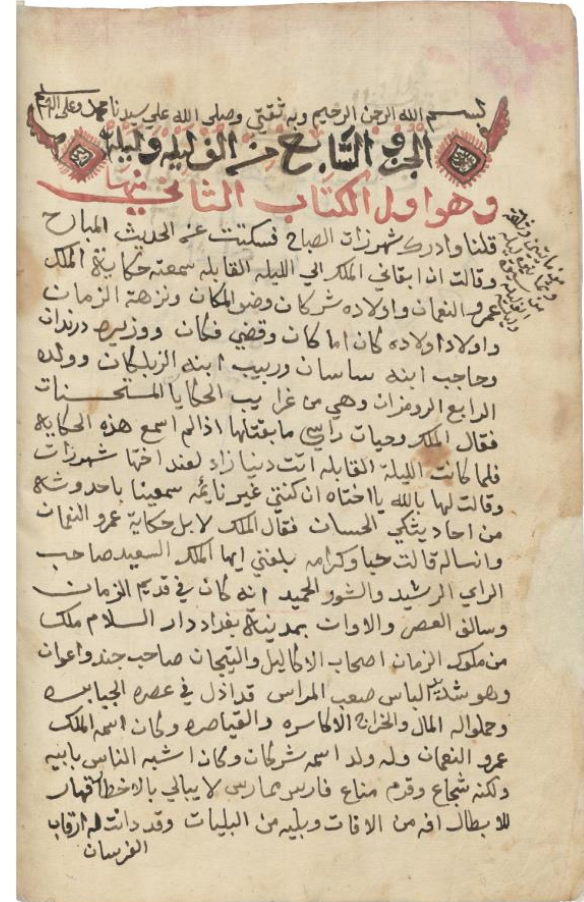 بسم الله الرحمن الرحيم وبه ثقتي وصلى الله على سيدنا محمد وعلى اله
الجزو السابع من الف ليله وليله
وهو اول الكتاب الثاني منها
قلنا وادرك شهرزات الصباح فسكتت عن الحديث المباح
وقالت ان ابقاني الملك الي الليله القابله سمعته حكاية الملك
عمرو النعمان واولاده شركان وضو المكان ونزهة الزمان
واولاد اولاده كان اما كان وقضي فكان ووزيره درندان
وحاجب ابنه ساسان وربيب ابنه الزبلكان وولده
الرابع الرومزان وهي من غرايب الحكايا المستحسنات
فقال الملك وحيات راسي ما بقتلها اذا لم اسمع هذه الحكاية
فلما كانت الليلة القابله اتت دنيازاد لعند اختها شهرزات
وقالت لها بالله يا اختاه ان كنتي غير نايمه سمعينا باحدوثة
من احاديثكي الحسان فقال الملك لا بل حكاية عمرو النعمان
وانساله قالت حبا وكرامه بلغني ايها الملك السعيد صاحب
الراي الرشيد والشور الحميد انه كان في قديم الزمان
وسالف العصر والاوان بمدينة بغداد دار السلام ملك
من ملوك الزمان اصحاب الاكاليل والتيجان صاحب جند واعوان
وهو شديد الباس صعب المراس قد اذل في عصره الجبابره
وحملو اله المال والخراج الاكاسره والقياصره وكان اسمه الملك
عمرو النعمان وله ولد اسمه شركان وكان اشبه الناس بابيه
ولكنه شجاع وقرم مناع فارس ممارس لا يبالي بالاخطار قهار
للابطال افه من الافات وبليه من البليات وقد دانت له ارقاب
الفرسان